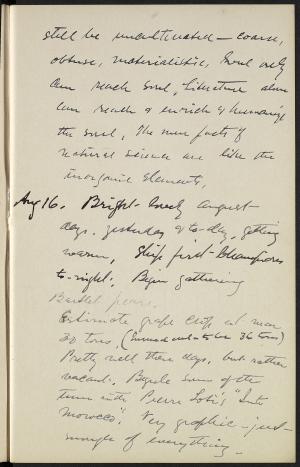 still be uncultivated — coarse,
obtuse, materialistic, Soul only
can reach soul, Literature alone
can reach & enrich & humanize
the soul, The mere facts of
natural science are like the
inorganic elements,
Aug 16. Bright lovely august
days, yesterday & to-day, getting
warm, Ship first Champions
to-night. Begin gathering
Bartlet pears.
Estimate grape crop at near
30 tons, (turned out to be 36 tons)
Pretty well these days, but rather
vacant. Beguile some of the
time with Pierre Loti's "Into
Morocco". Very graphic — just
enough of everything —